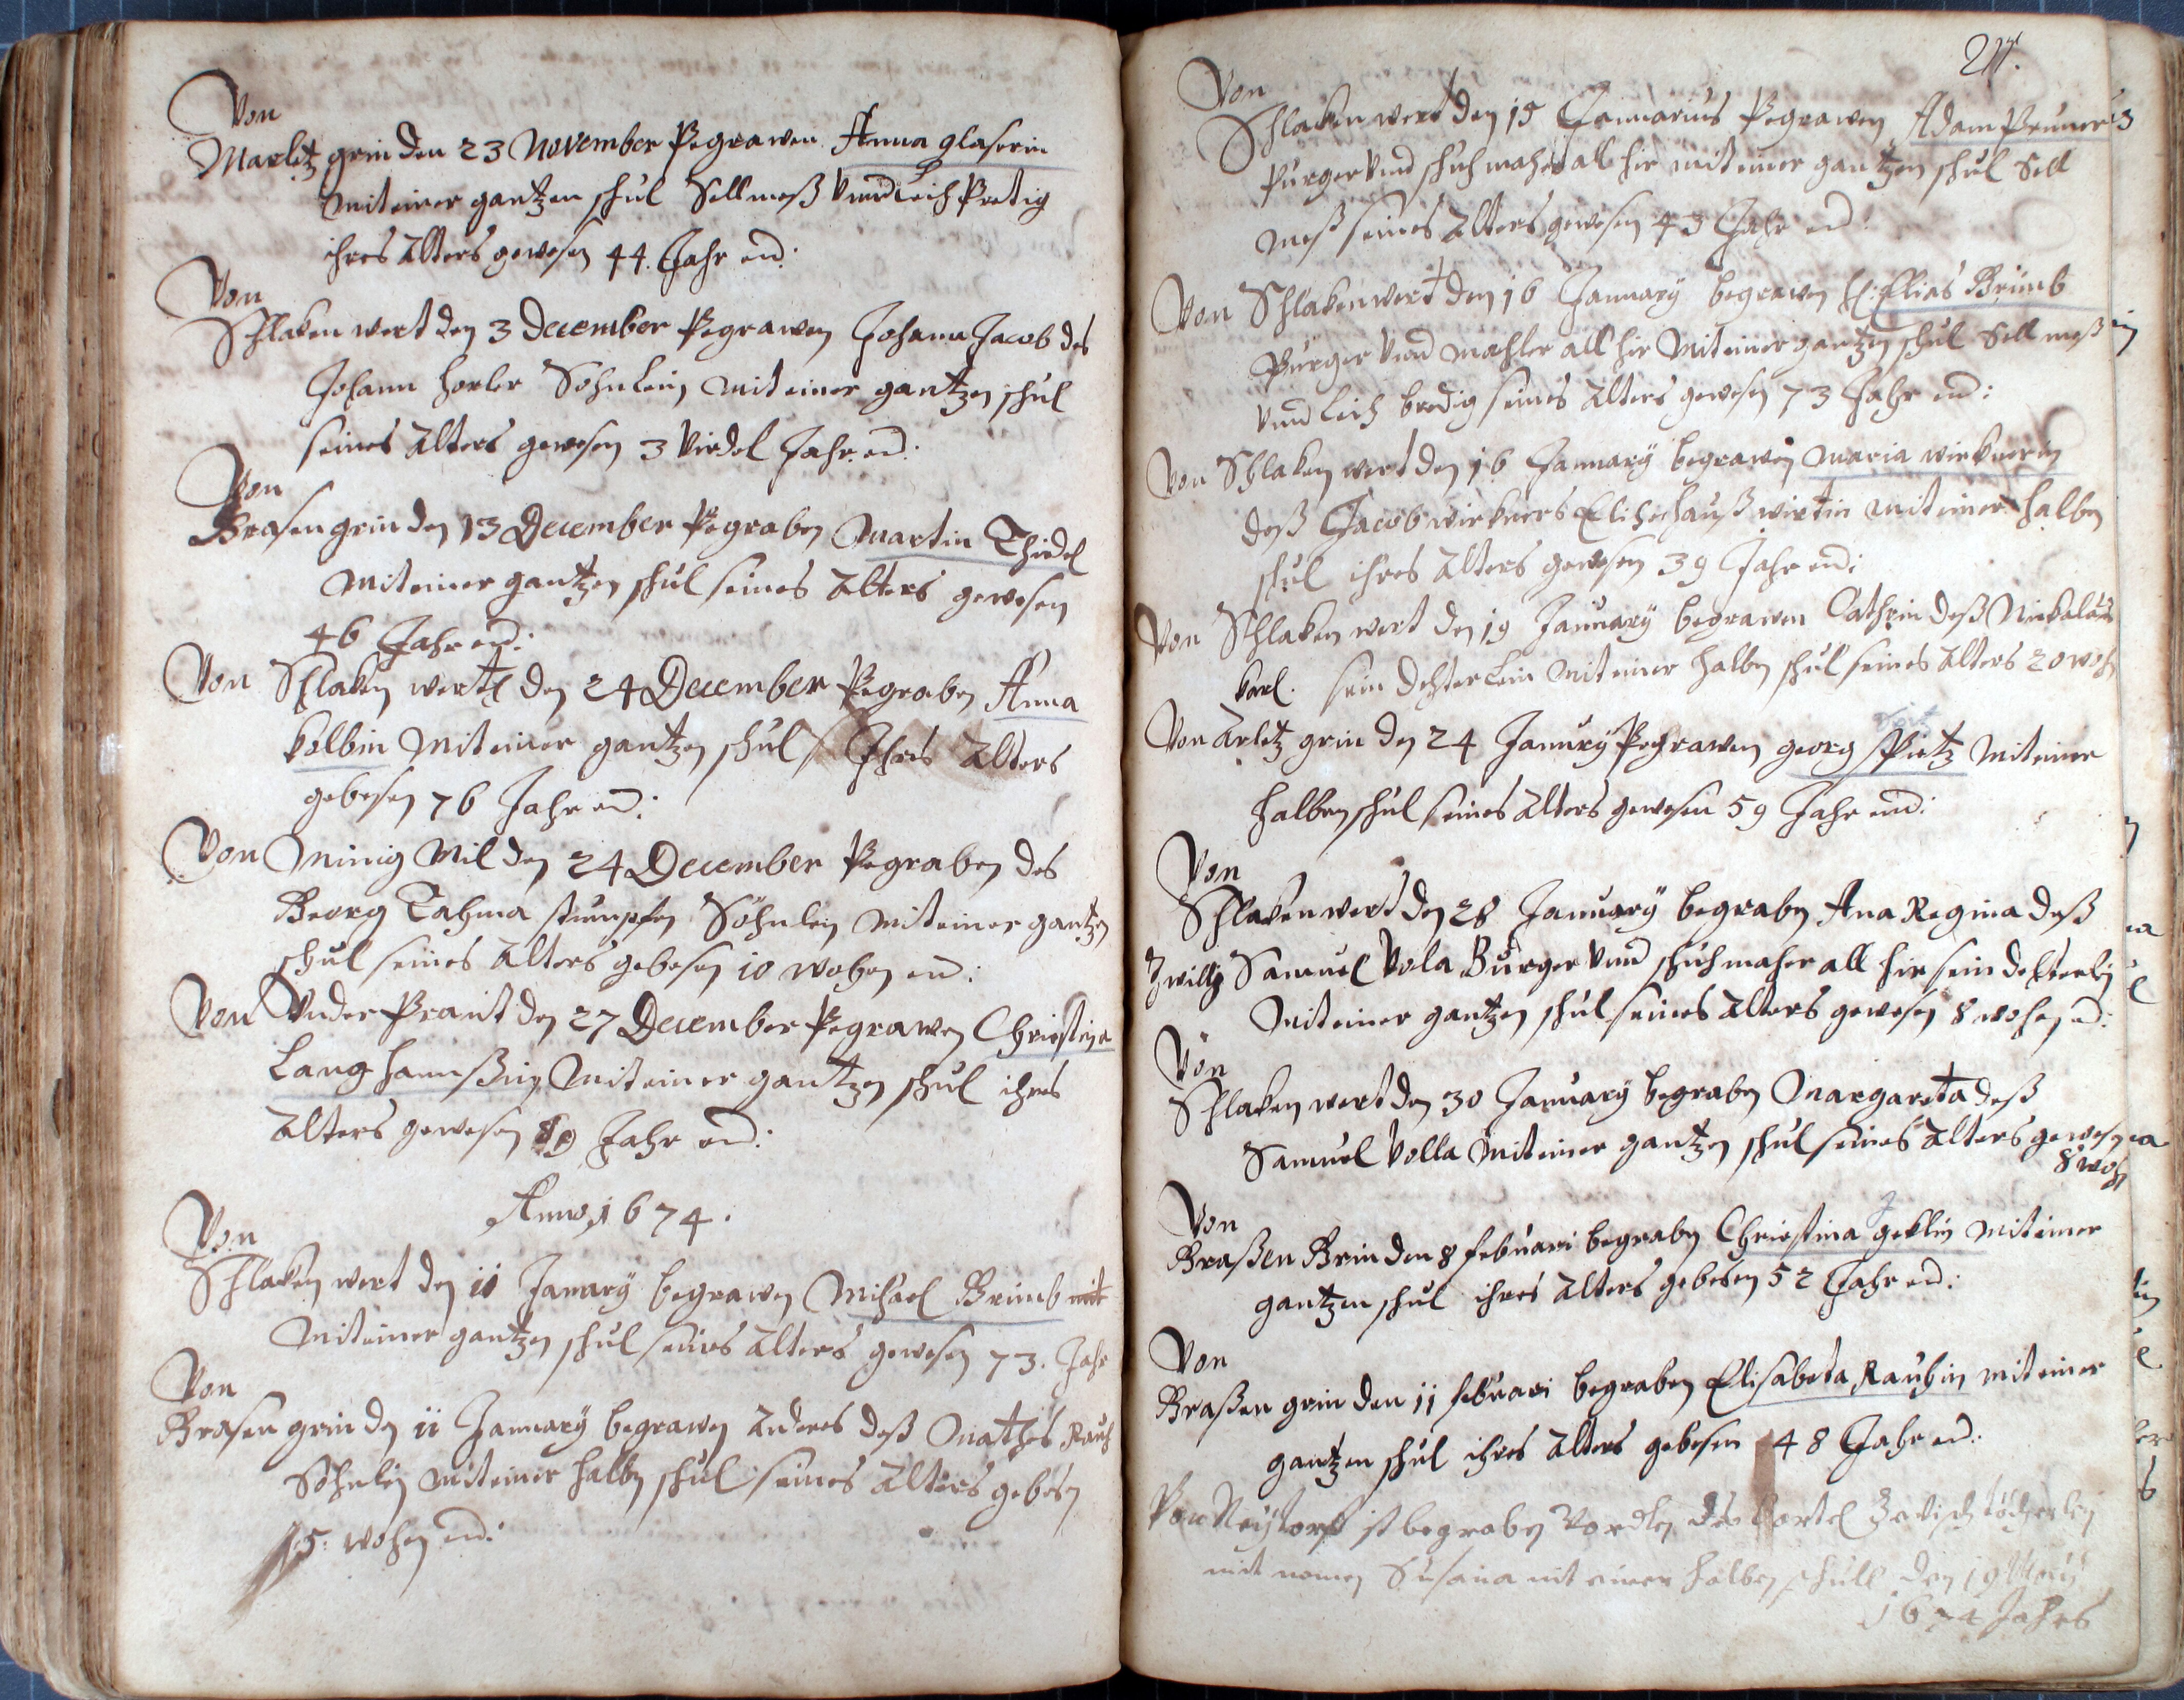 Von
Marletz grin den 23 November Pegrawen Anna glaserin
mit einer gantzen schul Sellmeß Vnd leich Pretig
ihres Alters gewesen 44. Jahr end:
Von
Schlaken wert den 3 December Pegrawen Johann Jacob des
Johann horler Sohnlein mit einer gantzen schul
seines Alters gewesen 3 Virdel Jahr end:
Von
Brasen grin den 13 December Pegraben Martin Thirdel
mit einer gantzen schul seines Alters gewesen
46 Jahr end:
Von Schlaken wertt den 24 December Pegraben Anna
kolbin mit einer gantzen schul Ihres Alters
gebesen 76 Jahr end:
Von Minig Mil den 24 December Pegraben des
Georg Tahma stumpfen Söhnlein mit einer gantzen
schul seines Alters gebesen 10 wohen end:
Von Vnder Prant den 27 December Pegrawen Christina
Lang hannßin mit einer gantzen schul ihres
Alters gewesen 89 Jahr end:
Anno 1674.
Von
Schlaken wert den 11 January begrawen Mihael Brimb mit
mit einer gantzen schul seines Alters gewesen 73. Jahr
Von
Brasen grin den 11 January begrawen Anderes deß Mathes Rauh
Sohnlein mit einer halben schul seines Alters gebesen
15. wohen end:
214.
Von
Schlaken wert den 15 Jannarius Pegrawen Adam Pruner
Purger Vnd schuhmaher all hir mit einer gantzen schul Sell
meß seines Alters gewesen 43 Jahr end:
Von Schlakenwert den 16 January begrawen H: Elias Brimb
Pürger Vnd Mahler all hir mit einer gantzen schul Sell meß
Vnd Leich bredig seines Alters gewesen 73 Jahr end:
Von Schlaken wert den 16 January begrawen Maria wirknerin
deß Jacob wirkners Elihe hauß wirtin mit einer halben
schul ihres Alters gewesen 39 Jahr end:
Von Schlaken wert den 19 January begrawen Cathrin deß Nickolaus
karl. sein dehterlein mit einer halben schul seines Alters 20 woh
Von Arletz grin den 24 Januwry Pegrawen georg spietz mit einer
halben schul seines Alters gewesen 59 Jahr end:
Von
Schlaken wert den 28 January begraben Ana Regina deß
Zwillg Samuel Vola Burger Vnd schuhmaher all hir sein dehterlein
mit einer gantzen schul seines Alters gewesen 8 wohen end:
Von
Schlaken wert den 30 January begraben Margareta deß
Samuel Volla mit einer gantzen schul seines Alters gewesen
8 woh
Von
Braßen Brin den 8 februari begraben Christina geklin mit einer
gantzen schul ihres Alters gebesen 52 Jahr end:
Von
Braßen grin den 11 februari begraben Elisabeta Rauhin mit einer
gantzen schul ihres Alters gebesen 48 Jahr end:
Von Neydorf ist begraben worden des Bartel töchterlein
mit nomen Susana mit einer halben schull den 19
1674 Jahrs